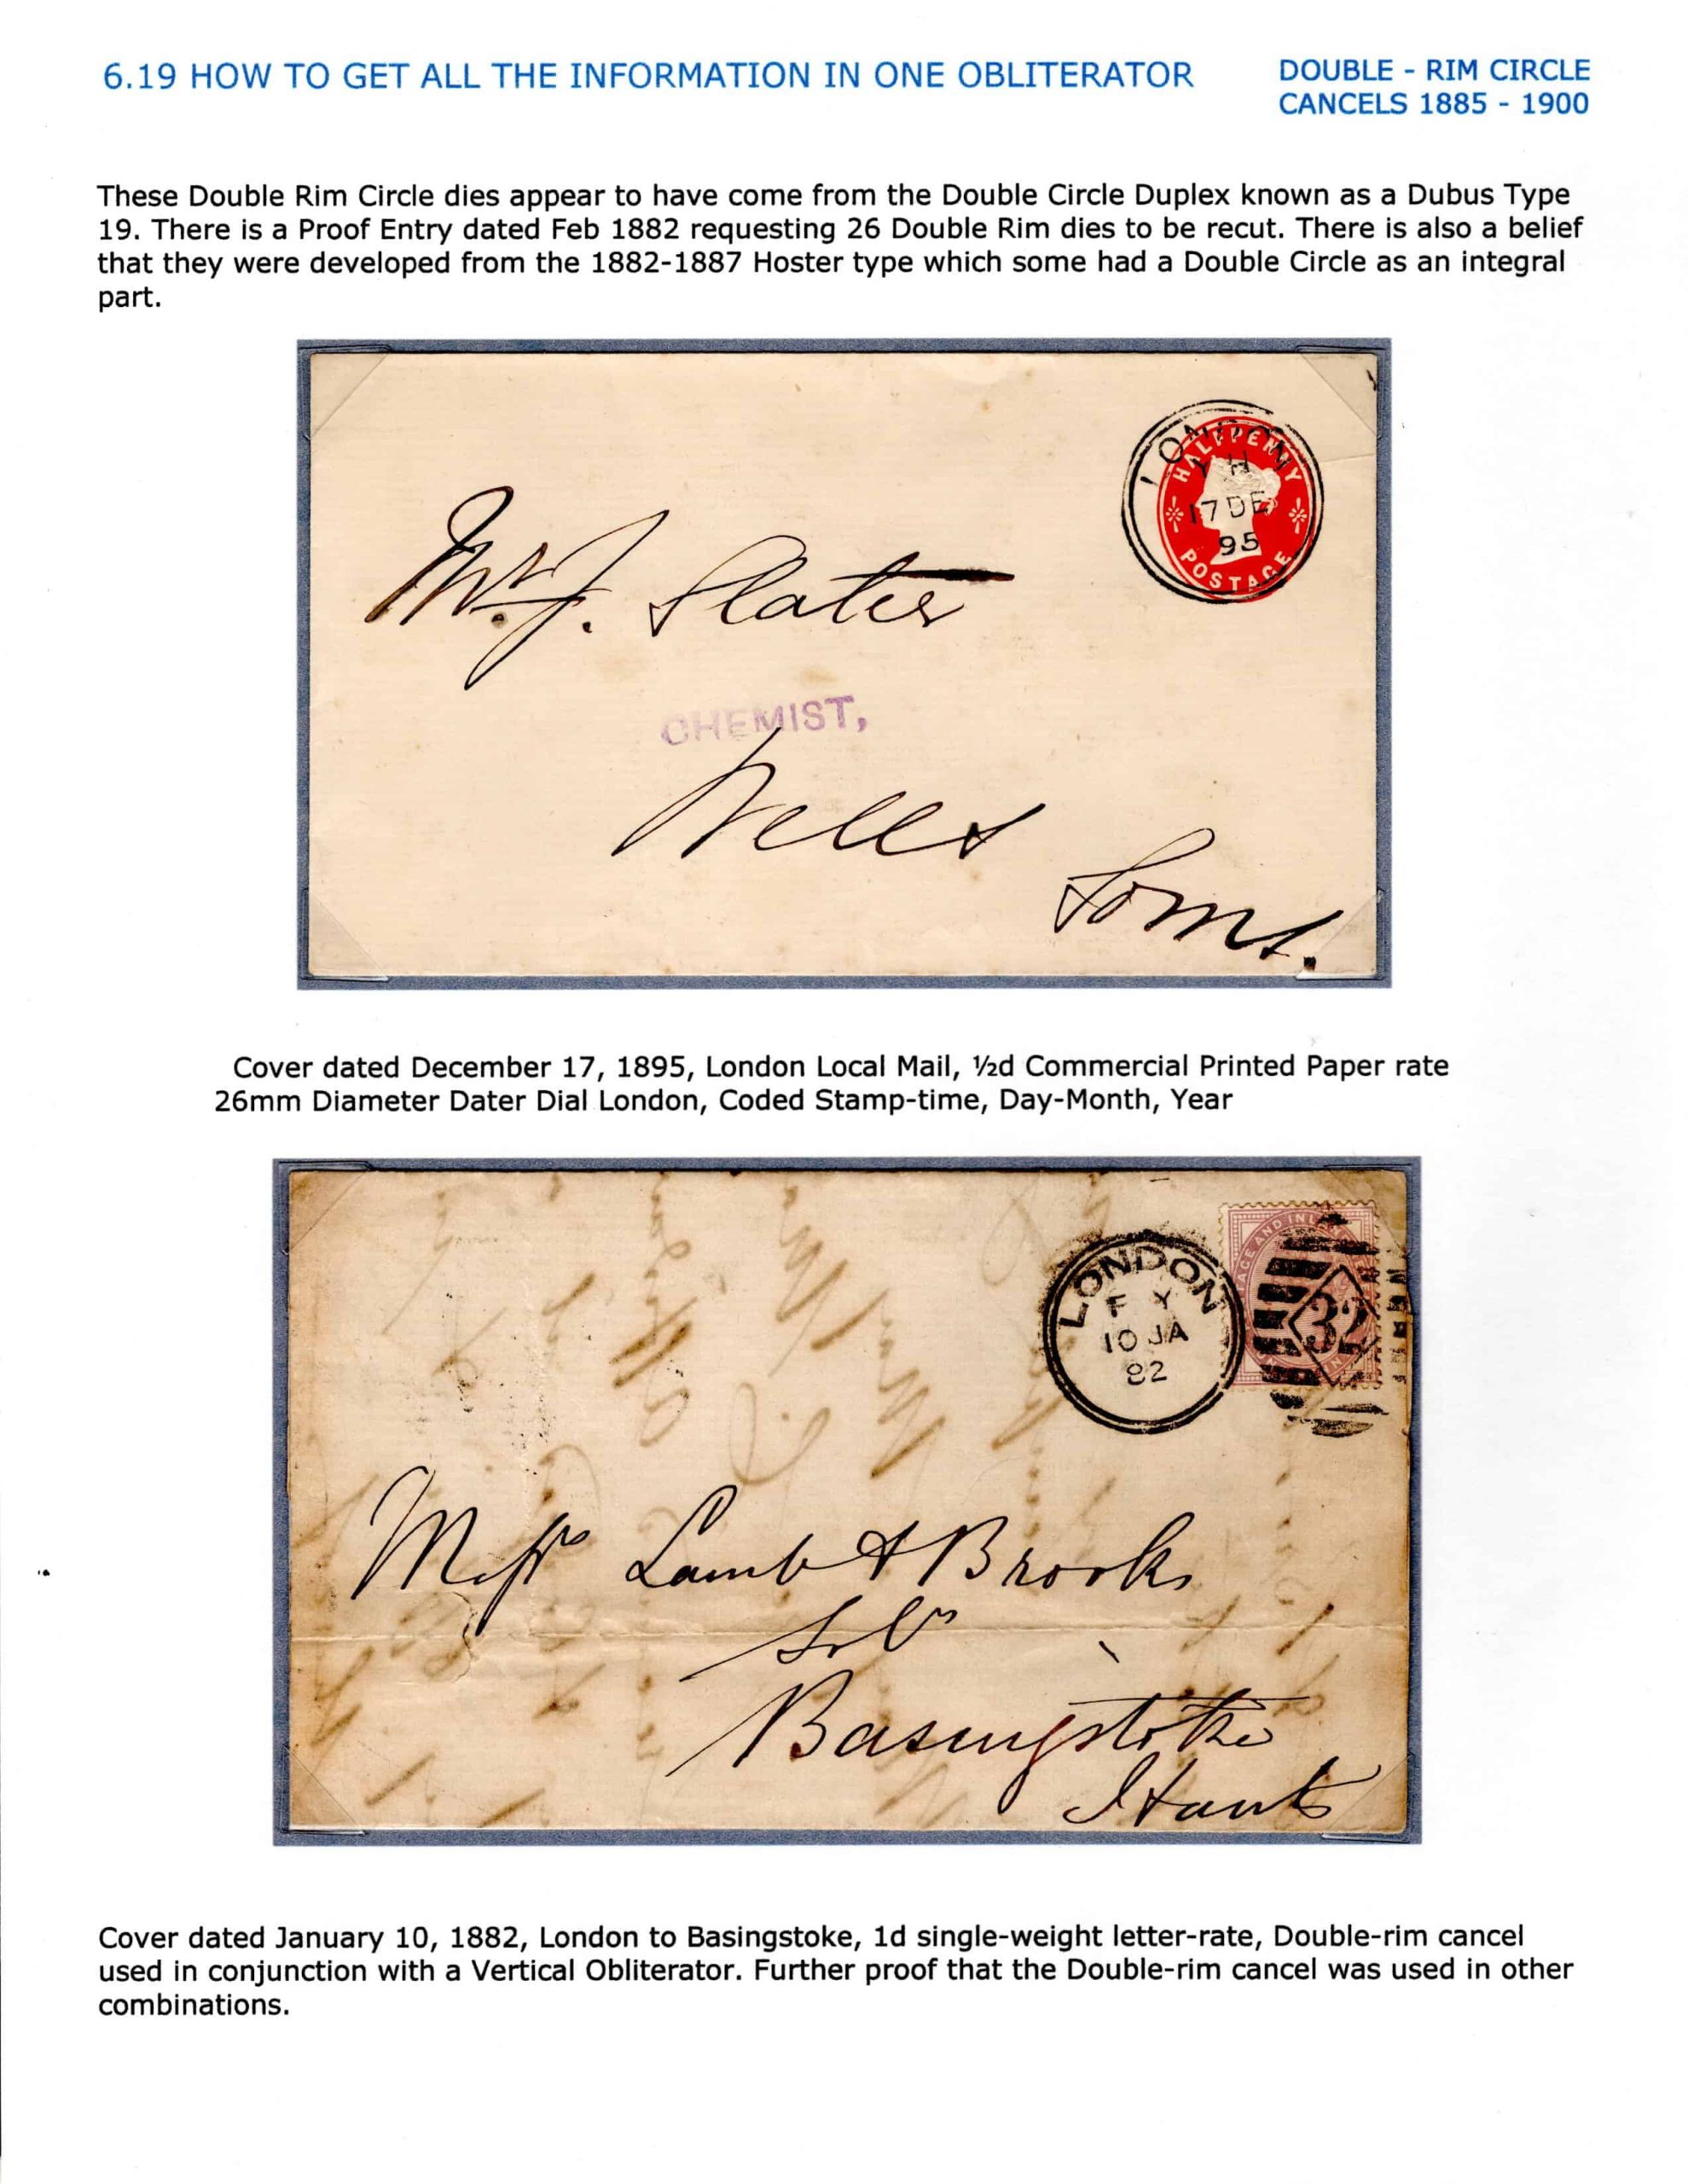 6.19 HOW TO GET ALL THE INFORMATION IN ONE OBLITERATOR
DOUBLE - RIM CIRCLE
CANCELS 1885 - 1900
These Double Rim Circle dies appear to have come from the Double Circle Duplex known as a Dubus Type
19. There is a Proof Entry dated Feb 1882 requesting 26 Double Rim dies to be recut. There is also a belief
that they were developed from the 1882-1887 Hoster type which some had a Double Circle as an integral
part.
LONDON
HALFPENNY
H
17 DE
95
POSTAGE
Mr. J. Slater
CHEMIST,
Wells
Soms.
Cover dated December 17, 1895, London Local Mail, ½d Commercial Printed Paper rate
26mm Diameter Dater Dial London, Coded Stamp-time, Day-Month, Year
LONDON
F Y
10 JA
82
AND INL
32
Messrs Lamb & Brooks
Solrs
Basingstoke
Hants
Cover dated January 10, 1882, London to Basingstoke, 1d single-weight letter-rate, Double-rim cancel
used in conjunction with a Vertical Obliterator. Further proof that the Double-rim cancel was used in other
combinations.